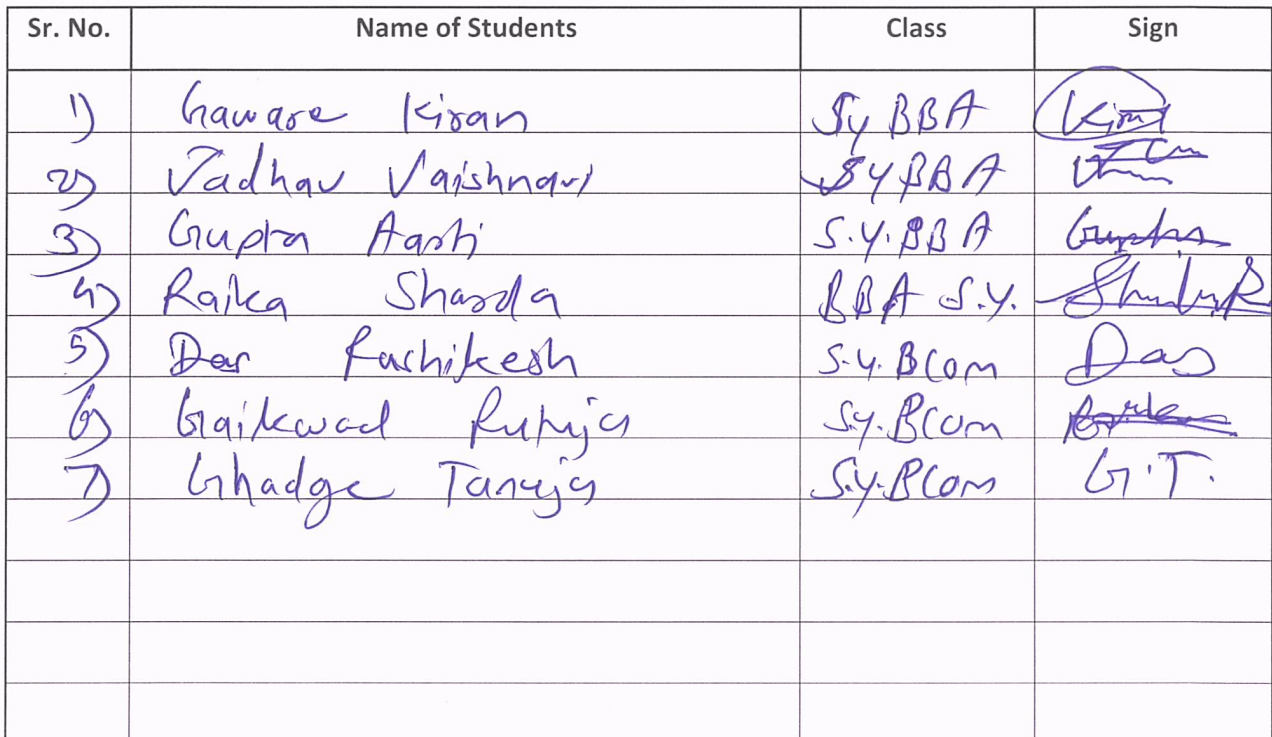 Sr. No. Name of Students Class Sign
1) Gaware Kiran Sy BBA Kiran
2) Jadhav Vaishnavi SY BBA
3) Gupta Aarti S.Y.BBA Gupta
4) Raika Sharda BBA S.Y.
5) Das Rushikesh S.Y.BCom Das
6) Gaikwad Rutuja S.Y.BCom
7) Ghadge Tanuja S.Y.BCom G.T.